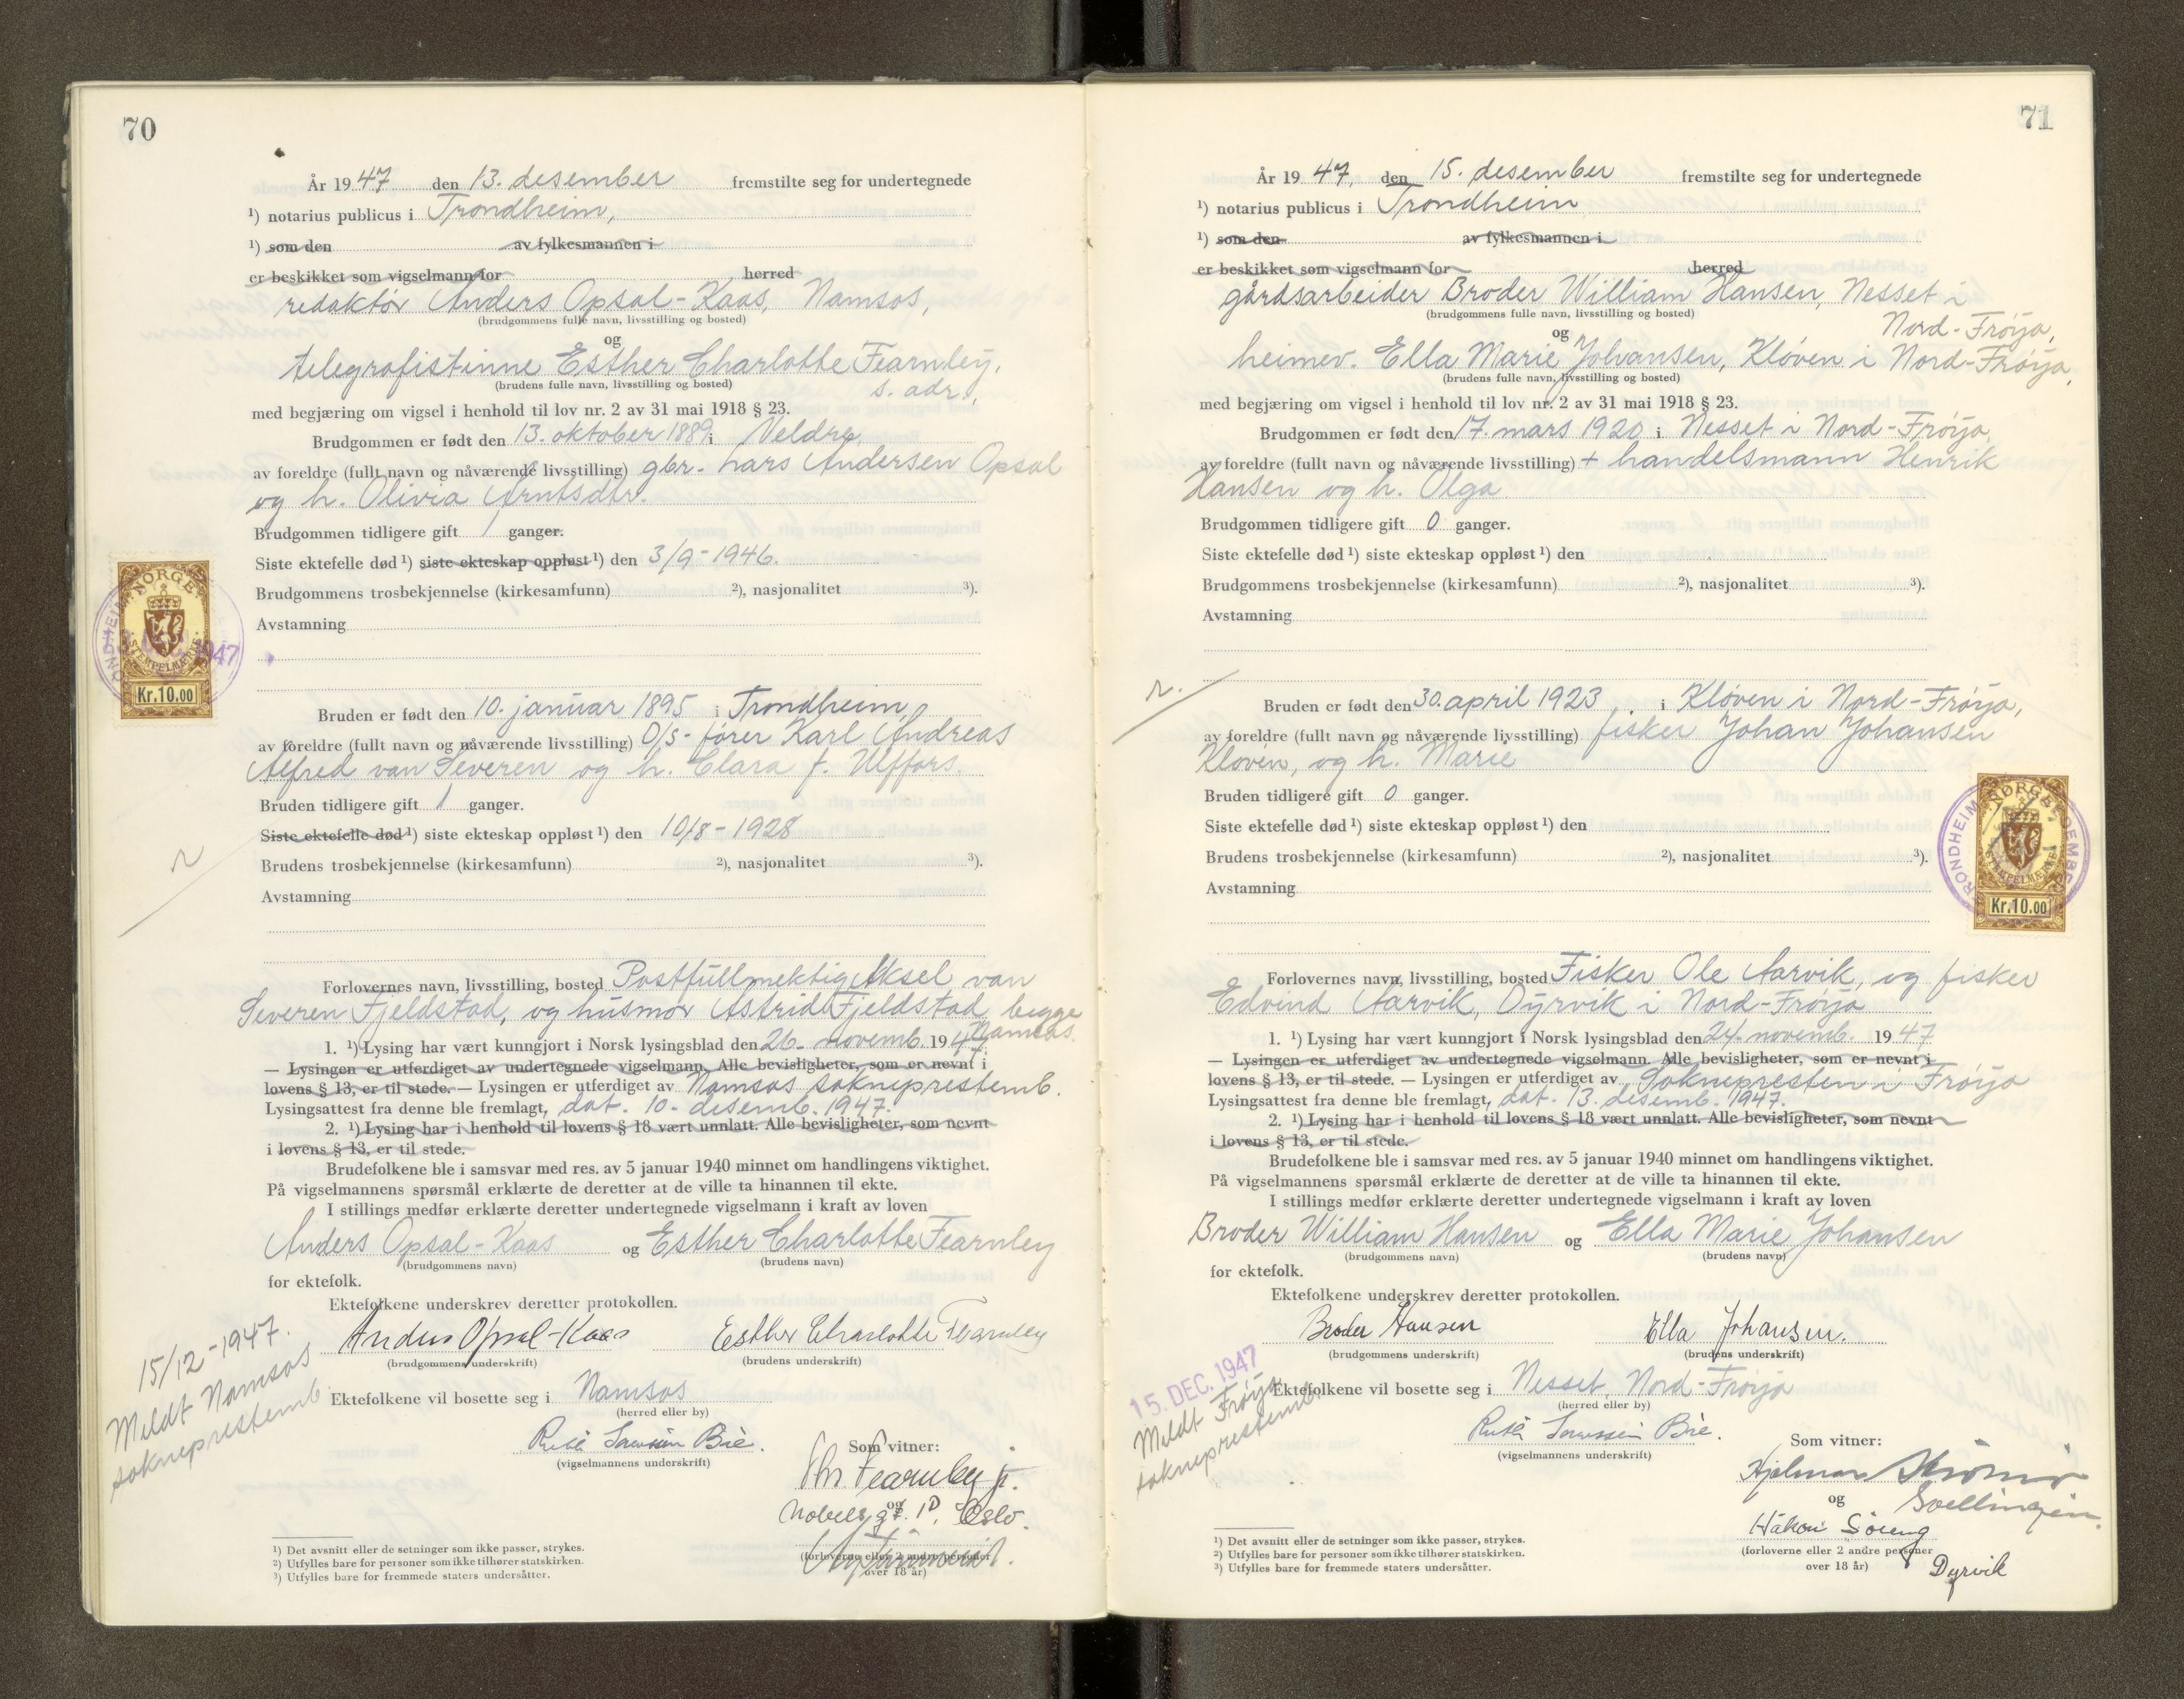 70
År 1947 den 13. desember fremstilte seg for undertegnede
¹) notarius publicus i Trondheim,
¹) som den av fylkesmannen i
er beskikket som vigselmann for herred
redaktør Anders Opsal-Kaas, Namsos,
(brudgommens fulle navn, livsstilling og bosted)
og
telegrafistinne Esther Charlotte Fearnley,
(brudens fulle navn, livsstilling og bosted) s. adr.,
med begjæring om vigsel i henhold til lov nr. 2 av 31 mai 1918 § 23.
Brudgommen er født den 13. oktober 1889 i Veldre,
av foreldre (fullt navn og nåværende livsstilling) gbr. Lars Andersen Opsal
og h. Olivia Arntsdtr.
Brudgommen tidligere gift 1 ganger.
Siste ektefelle død ¹) siste ekteskap oppløst ¹) den 3/9-1946.
Brudgommens trosbekjennelse (kirkesamfunn) ²), nasjonalitet ³).
Avstamning
NORGE
STEMPELMERKE
1947
Kr.10.00
Bruden er født den 10. januar 1895 i Trondheim,
av foreldre (fullt navn og nåværende livsstilling) O/s-fører Karl Andreas
Alfred van Severen og h. Clara f. Ulffors.
Bruden tidligere gift 1 ganger.
Siste ektefelle død ¹) siste ekteskap oppløst ¹) den 10/8-1928
Brudens trosbekjennelse (kirkesamfunn) ²), nasjonalitet ³).
Avstamning
Forlovernes navn, livsstilling, bosted Postfullmektig Aksel van
Severen Fjeldstad, og husmor Astrid Fjeldstad, begge
Namsos.
1. ¹) Lysing har vært kunngjort i Norsk lysingsblad den 26. novemb. 1947.
— Lysingen er utferdiget av undertegnede vigselmann. Alle bevisligheter, som er nevnt i
lovens § 13, er til stede. — Lysingen er utferdiget av Namsos sokneprestemb.
Lysingsattest fra denne ble fremlagt, dat. 10. desemb. 1947.
2. ¹) Lysing har i henhold til lovens § 18 vært unnlatt. Alle bevisligheter, som nevnt
i lovens § 13, er til stede.
Brudefolkene ble i samsvar med res. av 5 januar 1940 minnet om handlingens viktighet.
På vigselmannens spørsmål erklærte de deretter at de ville ta hinannen til ekte.
I stillings medfør erklærte deretter undertegnede vigselmann i kraft av loven
Anders Opsal-Kaas og Esther Charlotte Fearnley
(brudgommens navn) (brudens navn)
for ektefolk.
Ektefolkene underskrev deretter protokollen.
Anders Opsal-Kaas Esther Charlotte Fearnley
(brudgommens underskrift) (brudens underskrift)
15/12-1947.
Meldt Namsos
sokneprestemb.
Ektefolkene vil bosette seg i Namsos
(herred eller by)
Ruth Sørensen Bie.
(vigselmannens underskrift)
Som vitner:
Thr. Fearnley jr.
Nobels gt. 1D, Oslo.
og
(forloverne eller 2 andre personer
over 18 år)
¹) Det avsnitt eller de setninger som ikke passer, strykes.
²) Utfylles bare for personer som ikke tilhører statskirken.
³) Utfylles bare for fremmede staters undersåtter.
71
År 1947, den 15. desember fremstilte seg for undertegnede
¹) notarius publicus i Trondheim
¹) som den av fylkesmannen i
er beskikket som vigselmann for herred
gårdsarbeider Broder William Hansen, Nesset i
(brudgommens fulle navn, livsstilling og bosted)
og Nord-Frøya,
heimev. Ella Marie Johansen, Kløven i Nord-Frøya,
(brudens fulle navn, livsstilling og bosted)
med begjæring om vigsel i henhold til lov nr. 2 av 31 mai 1918 § 23.
Brudgommen er født den 17. mars 1920 i Nesset i Nord-Frøya,
av foreldre (fullt navn og nåværende livsstilling) + handelsmann Henrik
Hansen og h. Olga
Brudgommen tidligere gift 0 ganger.
Siste ektefelle død ¹) siste ekteskap oppløst ¹) den
Brudgommens trosbekjennelse (kirkesamfunn) ²), nasjonalitet ³).
Avstamning
Bruden er født den 30. april 1923 i Kløven i Nord-Frøya,
av foreldre (fullt navn og nåværende livsstilling) fisker Johan Johansen
Kløven, og h. Marie
Bruden tidligere gift 0 ganger.
Siste ektefelle død ¹) siste ekteskap oppløst ¹) den
Brudens trosbekjennelse (kirkesamfunn) ²), nasjonalitet ³).
Avstamning
NORGE
Kr.10.00
Forlovernes navn, livsstilling, bosted Fisker Ole Aarvik, og fisker
Edvind Aarvik, Dyrvik i Nord-Frøya
1. ¹) Lysing har vært kunngjort i Norsk lysingsblad den 24. novemb. 1947
— Lysingen er utferdiget av undertegnede vigselmann. Alle bevisligheter, som er nevnt i
lovens § 13, er til stede. — Lysingen er utferdiget av Soknepresten i Frøya
Lysingsattest fra denne ble fremlagt, dat. 13. desemb. 1947.
2. ¹) Lysing har i henhold til lovens § 18 vært unnlatt. Alle bevisligheter, som nevnt
i lovens § 13, er til stede.
Brudefolkene ble i samsvar med res. av 5 januar 1940 minnet om handlingens viktighet.
På vigselmannens spørsmål erklærte de deretter at de ville ta hinannen til ekte.
I stillings medfør erklærte deretter undertegnede vigselmann i kraft av loven
Broder William Hansen og Ella Marie Johansen
(brudgommens navn) (brudens navn)
for ektefolk.
Ektefolkene underskrev deretter protokollen.
Broder Hansen Ella Johansen.
(brudgommens underskrift) (brudens underskrift)
15. DEC. 1947
Meldt Frøya
sokneprestemb.
Ektefolkene vil bosette seg i Nesset, Nord-Frøya
(herred eller by)
Ruth Sørensen Bie.
(vigselmannens underskrift)
Som vitner:
Hjalmar
og
Håkon Søreng
(forloverne eller 2 andre personer
over 18 år)
Dyrvik
¹) Det avsnitt eller de setninger som ikke passer, strykes.
²) Utfylles bare for personer som ikke tilhører statskirken.
³) Utfylles bare for fremmede staters undersåtter.